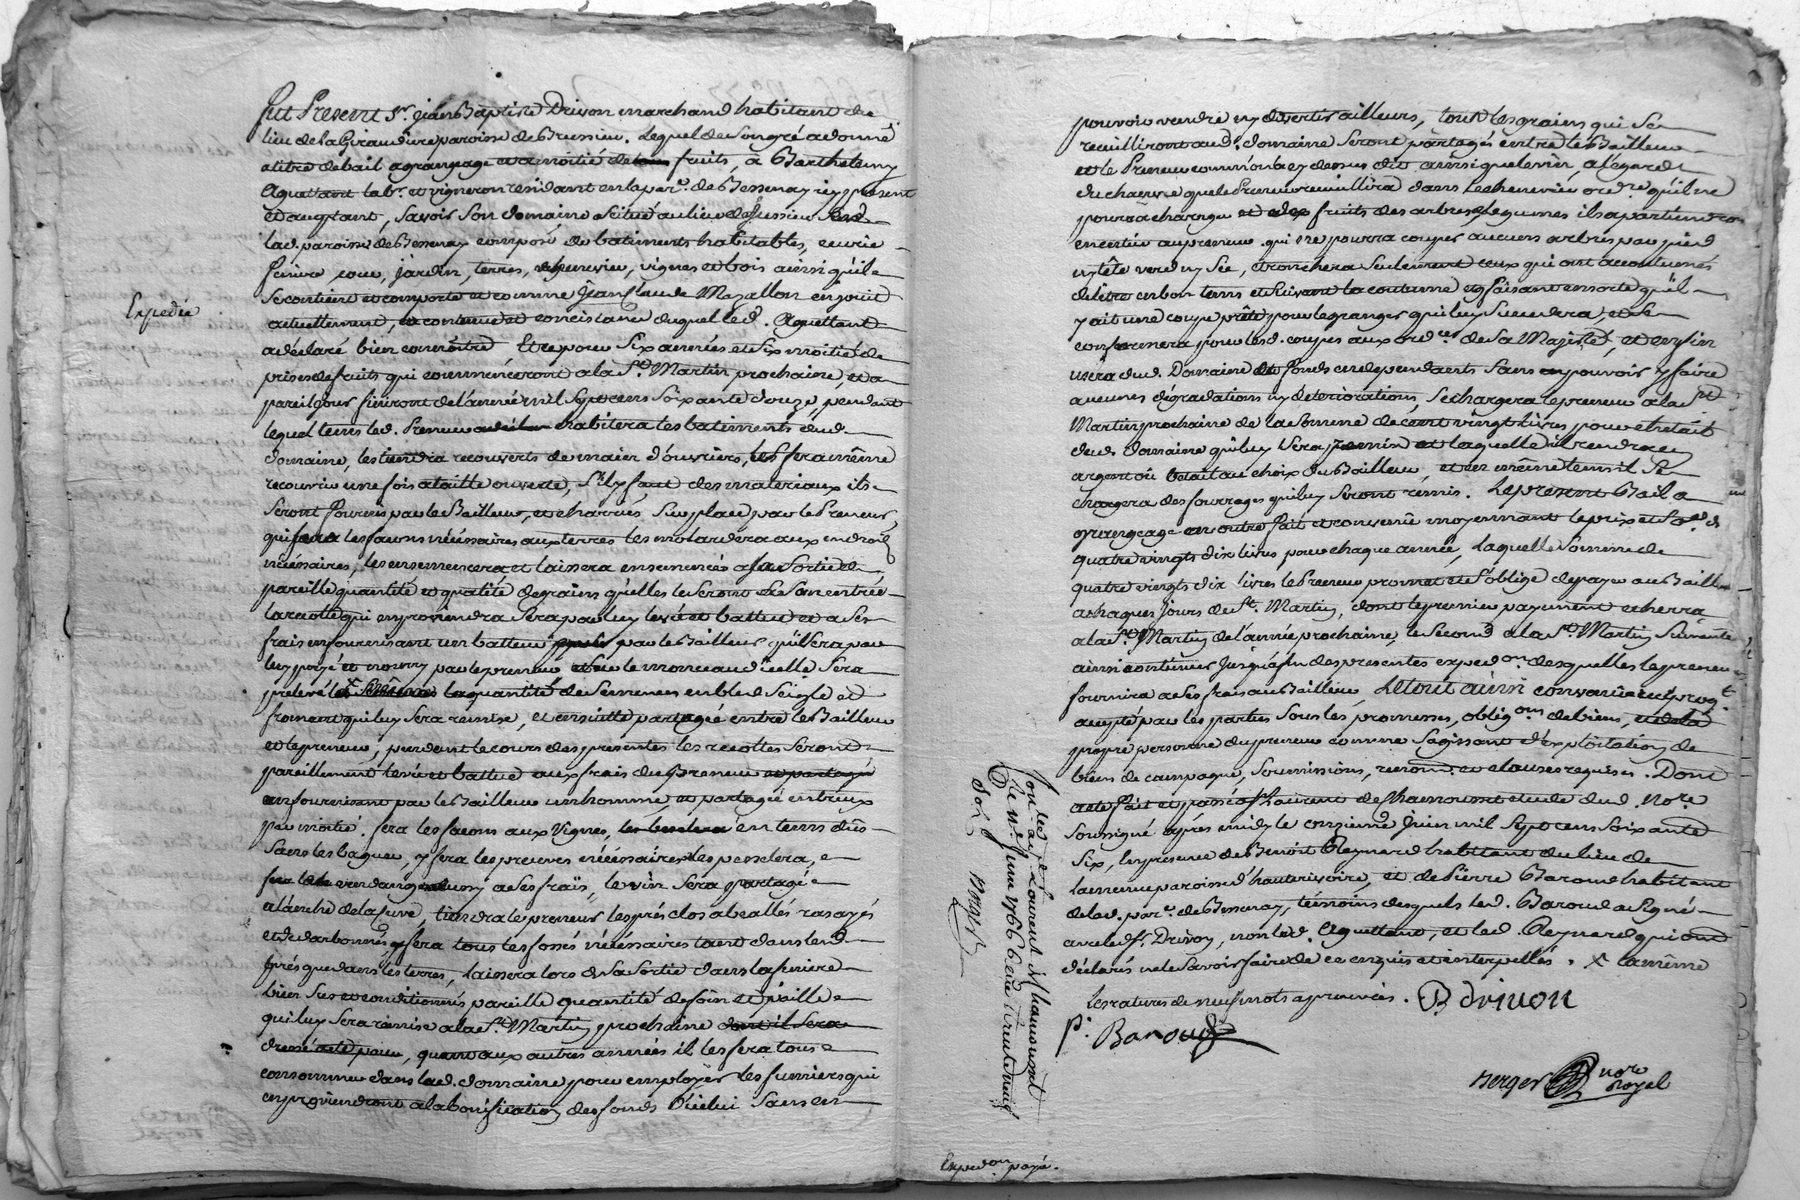 Expediée
Fut Present Sr. Jean Baptiste Drivon marchand habitant du
lieu de la Giraudiere paroisse de Brussieu. Lequel de Son gré a donné
a titre de bail a grangeage et a moitié de fruits, a Barthelemy
Aguettant labr. et vigneron residant en la par. de Bessenay icy present
et acceptant, Savoir Son domaine Scitué au lieu de
lad. paroisse de Bessenay composé de batiments habitables, ecurie
feniere cour, jardin, terres, cheneviere, vignes et bois ainsi qu'il
Se contient et comporte et comme Jean Claude Mazallon en jouit
actuellement, la contenue et consistance duquel led. Aguettant
a déclaré bien connoitre Et ce pour Six années et Six moitié de
prises de fruits qui commenceront a la St. Martin prochaine et a
pareil jour finiront de l'année mil Sept cens Soixante douze pendant
lequel tems led. Preneur habitera les batiments dud.
domaine, les tiendra recouverts de main d'ouvriers, les fera même
recouvrir une fois a taille ouverte, S'il y faut des materiaux ils
Seront fournis par le Bailleur, et charriés Sur place par le Preneur,
qui fera les façons nécéssaires aux terres les motardera aux endroits
nécéssaires, les ensemencera et laissera ensemencés a Sa Sortie de
pareille quantité et qualité de grains qu'elles le Seront a Son entrée
la recolte qui en proviendra Sera par luy levée et battue et a Ses
frais en fournissant un batteur par le Bailleur qu'il Sera par
luy payé et nourry par le preneur et Sur le monceau d'icelle Sera
prelevé X la quantité de Semences en bled Seigle et
froment qui luy Sera remise, et ensuitte partagée entre le Bailleur
et le preneur, pendant le cours des presentes les recoltes Seront
pareillement levée et battue aux frais du Preneur et partagé
en fournissant par le Bailleur un homme, et partagé entr'eux
par moitié. fera les façons aux Vignes, en tems dûs
Sans les baguer, y fera les preuves nécéssaires les passelera,
vendange a Ses frais, le vin Sera partagé
a l'anche de la cuve, tiendra le preneur les prés clos abeallés rasayés
et fera tous les fossés nécéssaires tant dans led.
prés que dans les terres, laissera lors de Sa Sortie dans la feniere
bien Sec et conditionnés pareille quantité de foin et paille
qui luy Sera remise a la St. Martin prochaine dont il Sera
dressé acte pour, quant aux autres années il les fera tous
consommer dans led. domaine pour employer les fumiers qui
en proviendront a la bonification des fonds d'icelui Sans en
pouvoir vendre ny divertir ailleurs, tous les grains qui Se
recuilliront aud. domaine Seront partagés entre le Bailleur
et le Preneur comm'on a cy dessus dit ainsi que le vin, a l'egard
du chanvre que le Preneur recuillira dans le chenevier ordre. qu'il ne
pourra changer et des fruits des arbres, legumes ils apartiendront
en entier au preneur. qui ne pourra couper aucuns arbres par pied
ny tête verd ny Sec, etronchera Seulement ceux qui ont accoutumés
de l'être en bon tems et Suivant la coutume en faisant en sorte qu'il
y ait une coupe prête pour le granger qui luy Succedera, et Se
conformera pour lesd. coupes aux ordces. de Sa Majesté, et enfin
usera dud. Domaine et fonds en dependants Sans pouvoir y faire
aucunes dégradations ny detériorations, Se chargera le preneur a la St.
Martin prochaine de la Somme de cent vingt livres pour bétail
dud. domaine qui luy Sera remis et laquelle il rendra en
argent ou betail au choix du Bailleur et en même tems il Se
chargera des fourrages qui luy Seront remis. Le present Bail a
grangeage en outre fait et convenu moyennant le prix et So. de
quatre vingts dix livres pour chaque année, laquelle Somme de
quatre vingts dix livres le Preneur promet et S'oblige de payer au Bailleur
a chaques jours de St. Martin, dont le premier payement echerra
a la St. Martin de l'année prochaine, le Second a la St. Martin Suivante
ainsi continuer Jusqu'a fin des presentes exped.on desquelles le preneur
fournira a Ses frais au Bailleur, Le tout ainsi convenu
accepté par les parties Sous les promesses, oblig.ons de biens,
propre personne du preneur comme Sagissant d'exploitation de
biens de campagne, Soumissions, renon.. et clauses requises. Dont
acte fait et passé a St. Laurent de Chamousset etude dud. Nore
Soussigné après midy le onzieme Juin mil Sept cens Soixante
Six, en presence de Benoit Reynard habitant du lieu de
la meme paroisse d'hauterivoire, et de Pierre Baroud habitant
de lad. par. de Bessenay, temoins desquels led. Baroud a Signé
avec led. Sr. Drivon, non led. Aguettant, et led. Reynard qui ont
déclarés ne le Savoir faire de ce enquis et interpellés. X la même
les ratures de neuf mots aprouvées. B Drivon
P. Baroud
Berger nore Royal
Con.lé a St. Laurent de Chamousset
le Juin 1766
Exped.on payé.